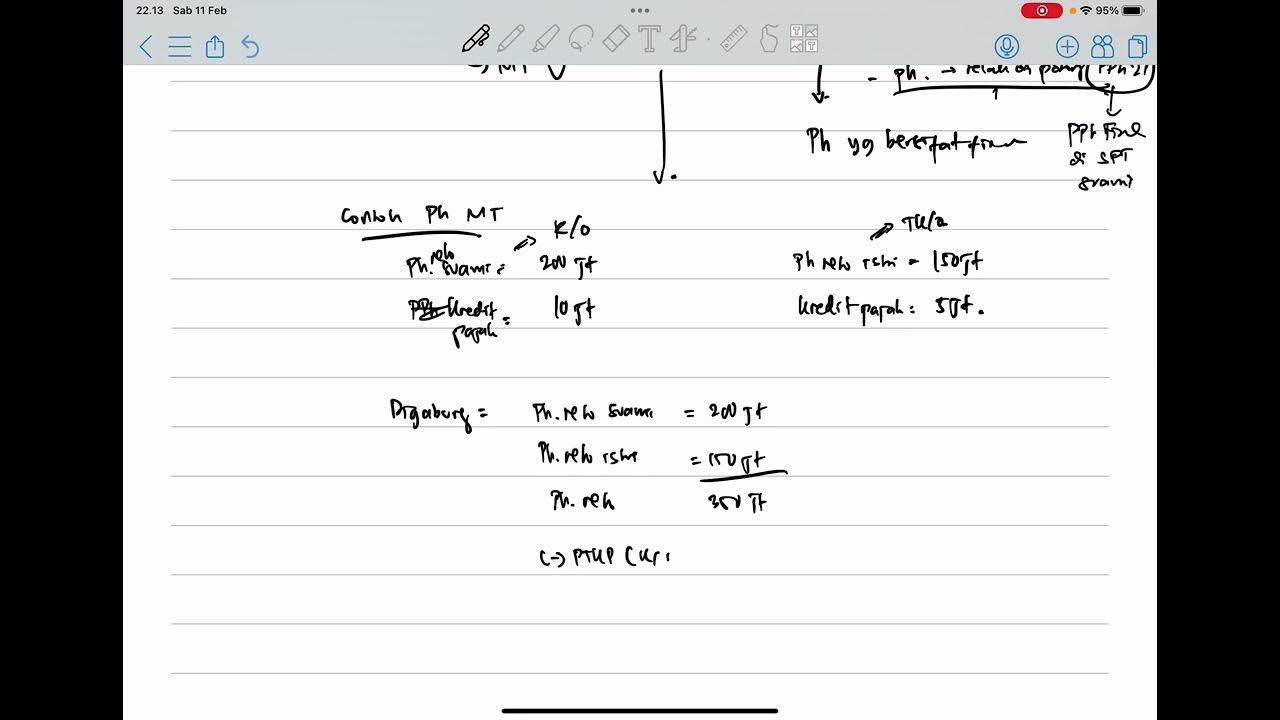 22.13 Sab 11 Feb 95%
MT
- Ph. → PPh 21
Ph yg bersifat final
PPh Final
di SPT
suami
Contoh Ph MT
K/0
Ph. neto suami = 200 jt
Kredit pajak = 10 jt
TK/0
Ph neto istri = 150 jt
Kredit pajak = 5 jt.
Digabung = Ph. neto suami = 200 jt
Ph. neto istri = 150 jt
Ph. neto 350 jt
(-) PTKP (K/I